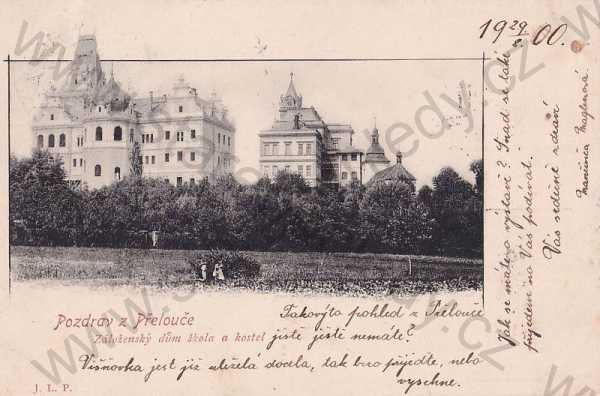 19 29/5. 00.
Pozdrav z Přelouče
Záloženský dům škola a kostel
Takovýto pohled z Přelouče
jistě ještě nemáte?
Višňovka jest již uležélá docela, tak brzo přijeďte, nebo
vyschne.
Jak se máte po výstavě? Snad se také
přijedem na Vás podívat.
Vás srdečně zdraví
Francinca
J. L. P.